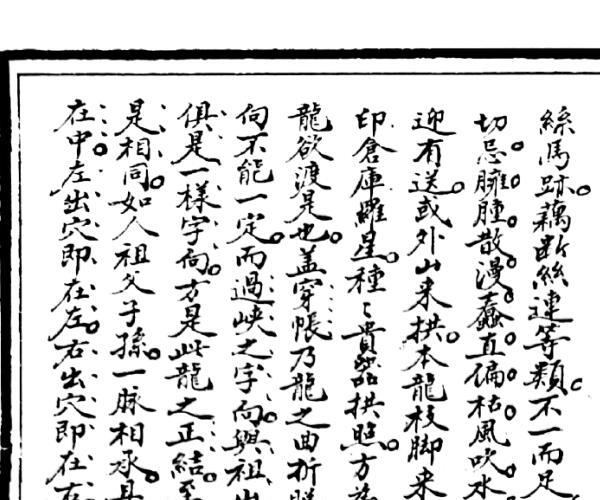 絲馬跡藕断絲連等類。不一而足
切忌臃腫散漫蠢直偏枯風吹水
迎有送。或外山来拱。本龍枝脚来
印倉庫羅星。種〻貴器拱照。方為
龍欲渡是也。盖穿帳乃龍之曲折
向不能一定。而過峡之字向。與祖出
俱是一様字向。方是此龍之正結。至
是相同。如人祖父子孫。一脉相承。
在中。左出穴即在左。右出穴即在右